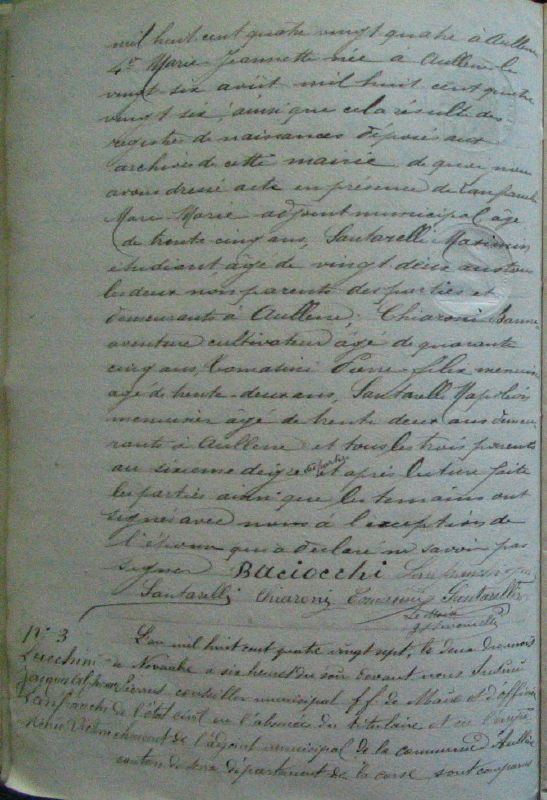 mil huit cent quatre vingt quatre à Aullene
4° Marie Jeannette née à Aullene le
vingt six août mil huit cent quatre
vingt six, ainsi que cela résulte des
registres de naissances déposé aux
archives de cette mairie de quoi nous
avons dressé acte en présence de Lanfranchi
Marc Marie adjoint municipal âgé
de trente cinq ans, Santarelli Maximin
étudiant âgé de vingt deux ans tous
les deux non parents des parties et
demeurants à Aullene, Chiaroni Bonne
aventure cultivateur âgé de quarante
cinq ans, Tomasini Pierre felix menuisier
agé de trente-deux ans, Santarelli Napoléon
menuisier âgé de trente deux ans demeu
rants à Aullene et tous les trois parents
au sixieme degré des parties et après lecture faite
les parties ainsi que les temoins ont
signé avec nous à l'exception de
l'épouse qui a déclaré ne savoir pas
signer Baciocchi Lanfranchi
Santarelli Chiaroni Tomasini Santarelli
Le Maire
N° 3
Lucchini
Jacques
Lanfranchi
L'an mil huit cent quatre vingt sept, le deux du mois
de Novembre a six heures du soir devant nous
Pierre conseiller municipal ff. de Maire et d'officier
de l'état civil en l'absence du titulaire et en
de l'adjoint municipal de la commune d'Aullene
canton de Serra département de la Corse sont comparus